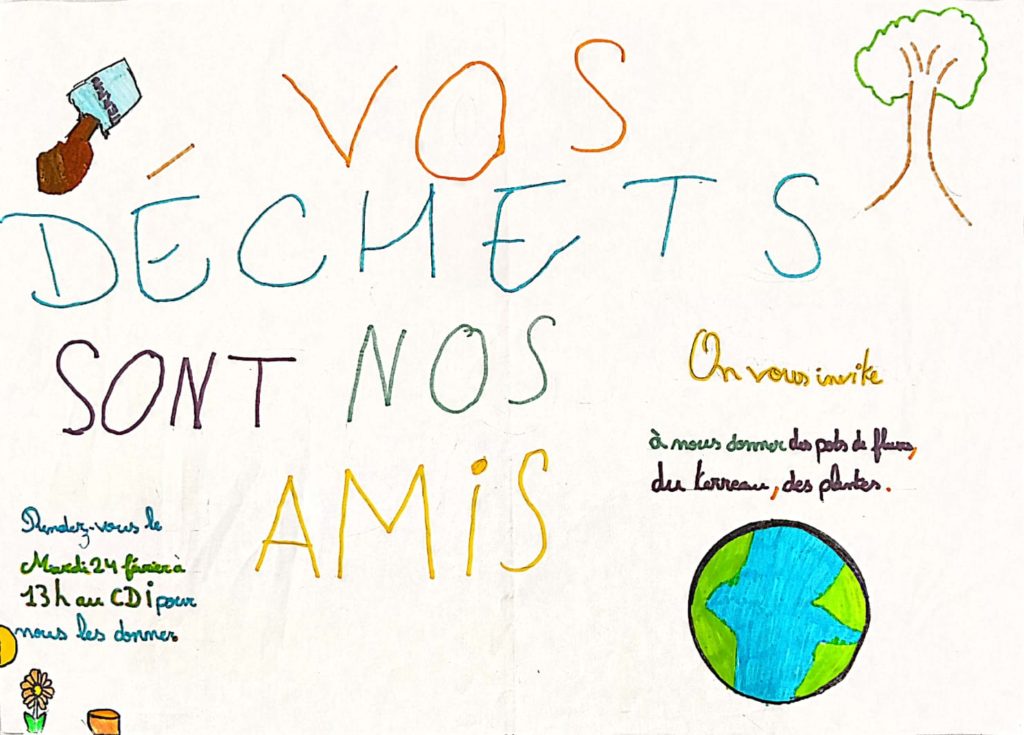 VOS
DÉCHETS
SONT NOS
AMiS
On vous invite
à nous donner des pots de fleurs,
du terreau, des plantes.
Rendez-vous le
Mardi 24 février à
13h au CDi pour
nous les donner